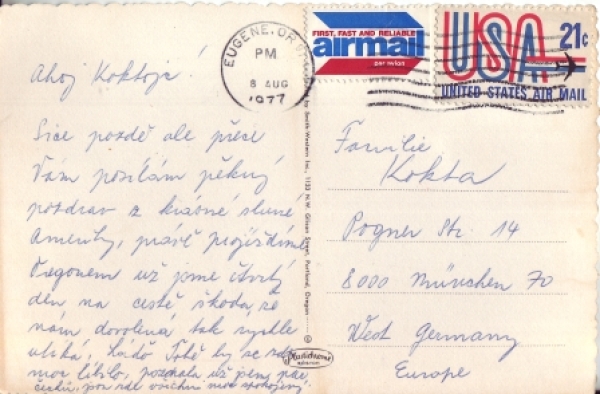 Ahoj Koktoja!
Sice pozdě ale přece
Vám posílám pěkný
pozdrav z krásné slunné
Ameriky, právě projíždíme
Oregonem už jsme čtvrtý
den na cestě škoda, že
nám dovolená tak rychle
utíká, Láďo Tobě by se zde
moc líbilo, poznala už jsem pár
čechů, jsou zde všichni moc spokojený.
EUGENE, OR
PM
8 AUG
1977
FIRST, FAST AND RELIABLE
airmail
par avion
USA
21¢
UNITED STATES AIR MAIL
by Smith-Western Inc., 1133 N.W. Glisan Street, Portland, Oregon
Plastichrome
Familie
Kokta
Pogner Str. 14
8000 München 70
West Germany
Europe